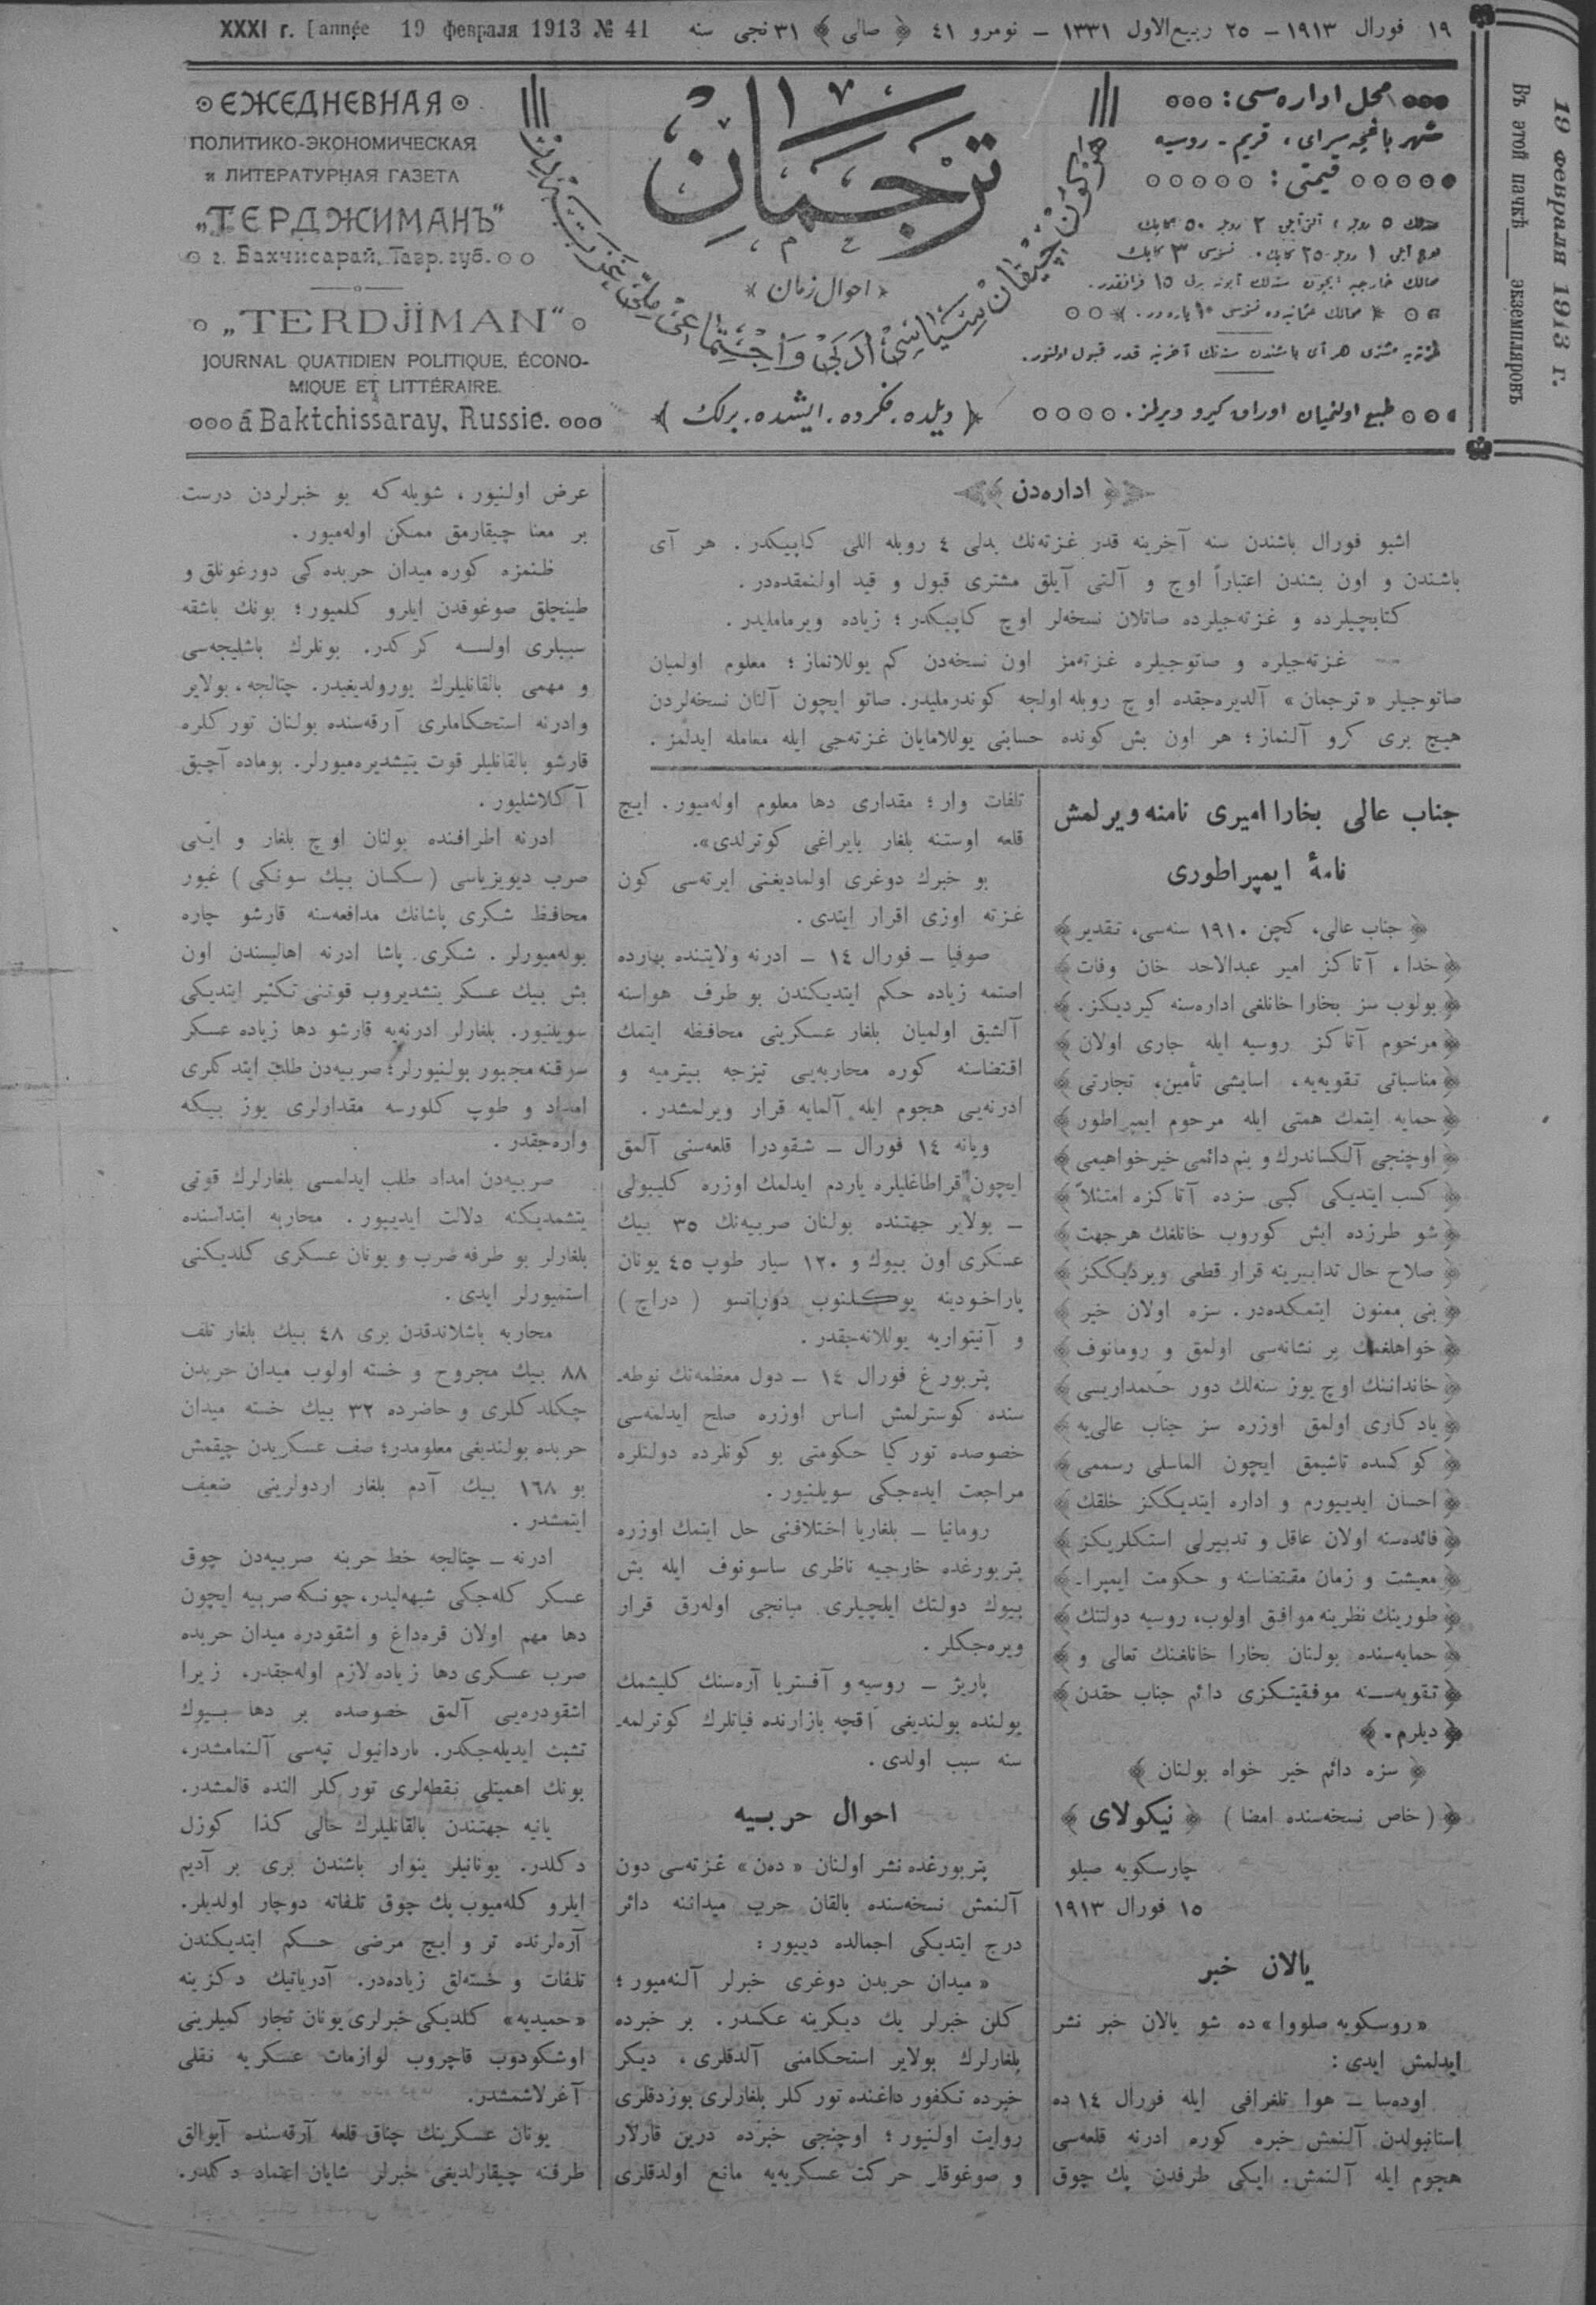 XXXI г. [année 19 февраля 1913 № 41
١٩ فورال ١٩١٣ – ٢٥ ربيع‌الاول ١٣٣١ – نومرو ٤١ ﴿ صالی ﴾ ٣١ نجی سنه
19 февраля 1913 г.
Въ этой пачкѣ ____ экземпляровъ
ЕЖЕДНЕВНАЯ
ПОЛИТИКО-ЭКОНОМИЧЕСКАЯ
и ЛИТЕРАТУРНАЯ ГАЗЕТА
„ТЕРДЖИМАНЪ“
г. Бахчисарай, Тавр. губ.
„TERDJİMAN“
JOURNAL QUATIDIEN POLITIQUE, ÉCONO-
MIQUE ET LITTÉRAIRE.
á Baktchissaray, Russie.
ترجمان
﴿ احوال زمان ﴾
﴿ ديلده. فكرده. ايشده. برلك ﴾
محل اداره‌سی:
شهر باغچه‌سرای، قريم - روسيه
قيمتی:
طبع اولنميان اوراق كيرو ويرلمز.
﴿ اداره‌دن ﴾
اشبو فورال باشندن سنه آخرينه قدر غزته‌نك بدلی ٤ روبله اللی كاپيكدر. هر آی
باشندن و اون بشندن اعتباراً اوچ و آلتی آيلق مشتری قبول و قيد اولنمقده‌در.
كتابچيلرده و غزته‌جيلرده صاتلان نسخه‌لر اوچ كاپيكدر؛ زياده ويرماملیدر.
غزته‌جيلره و صاتوجيلره غزته‌مز اون نسخه‌دن كم يوللانماز؛ معلوم اولميان
صاتوجيلر «ترجمان» آلديره‌جقده اوچ روبله اولجه كوندرمليدر. صاتو ايچون آلنان نسخه‌لردن
هيچ بری كرو آلنماز؛ هر اون بش كونده حسابنی يوللامايان غزته‌جی ايله معامله ايدلمز.
جناب عالی بخارا اميری نامنه ويرلمش
نامۀ ايمپراطوری
﴿ جناب عالی، كچن ١٩١٠ سنه‌سی، تقدير ﴾
﴿ خدا، آتاكز امير عبدالاحد خان وفات ﴾
﴿ بولوب سز بخارا خانلغی اداره‌سنه كيرديكز. ﴾
﴿ مرحوم آتاكز روسيه ايله جاری اولان ﴾
﴿ مناسباتی تقويه‌يه، اسايشی تأمين، تجارتی ﴾
﴿ حمايه ايتمك همتی ايله مرحوم ايمپراطور ﴾
﴿ اوچنجی آلكساندرك و بنم دائمی خيرخواهيمی ﴾
﴿ كسب ايتديكی كبی سزده آتاكزه امتثلاً ﴾
﴿ شو طرزده ايش كوروب خانلغك هرجهت ﴾
﴿ صلاح حال تدابيرينه قرار قطعی ويرديككز ﴾
﴿ بنی ممنون ايتمكده‌در. سزه اولان خير ﴾
﴿ خواهلغمك بر نشانه‌سی اولمق و رومانوف ﴾
﴿ خانداننك اوچ يوز سنه‌لك دور حكمداريسی ﴾
﴿ يادكاری اولمق اوزره سز جناب عالی‌يه ﴾
﴿ كوكسده تاشيمق ايچون الماسلی رسممی ﴾
﴿ احسان ايدييورم و اداره ايتديككز خلقك ﴾
﴿ فائده‌سنه اولان عاقل و تدبيرلی استكلريكز ﴾
﴿ معيشت و زمان مقتضاسنه و حكومت ايمپرا- ﴾
﴿ طورينك نظرينه موافق اولوب، روسيه دولتنك ﴾
﴿ حمايه‌سنده بولنان بخارا خانلغنك تعالی و ﴾
﴿ تقويه‌سنه موفقيتكزی دائم جناب حقدن ﴾
﴿ ديلرم. ﴾
﴿ سزه دائم خير خواه بولنان ﴾
﴿ ( خاص نسخه‌سنده امضا ) ﴿ نيكولای ﴾
چارسكويه صيلو
١٥ فورال ١٩١٣
يالان خبر
«روسكويه صلووا»ده شو يالان خبر نشر
ايدلمش ايدی:
اوده‌سا – هوا تلغرافی ايله فورال ١٤ ده
استانبولدن آلنمش خبره كوره ادرنه قلعه‌سی
هجوم ايله آلنمش. ايكی طرفدن پك چوق
تلفات وار؛ مقداری دها معلوم اوله‌ميور. ايچ
قلعه اوستنه بلغار بايراغی كوترلدی».
بو خبرك دوغری اولماديغنی ايرته‌سی كون
غزته اوزی اقرار ايتدی.
صوفيا – فورال ١٤ – ادرنه ولايتنده بهارده
اصتمه زياده حكم ايتديكندن بو طرف هواسنه
آلشيق اولميان بلغار عسكرينی محافظه ايتمك
اقتضاسنه كوره محاربه‌يی تيزجه بيترميه و
ادرنه‌يی هجوم ايله آلمايه قرار ويرلمشدر.
ويانه ١٤ فورال – شقودرا قلعه‌سنی آلمق
ايچون قراطاغليلره ياردم ايدلمك اوزره كليبولی
– بولاير جهتنده بولنان صربيه‌نك ٣٥ بيك
عسكری اون بيوك و ١٢٠ سيار طوپ ٤٥ يونان
پاراخودينه يوكلنوب دوراتسو ( دراچ )
و آنتيواريه يوللانه‌جقدر.
پتربورغ فورال ١٤ – دول معظمه‌نك نوطه‌-
سنده كوسترلمش اساس اوزره صلح ايدلمه‌سی
خصوصده توركيا حكومتی بو كونلرده دولتلره
مراجعت ايده‌جكی سويلنيور.
رومانيا – بلغاريا اختلافنی حل ايتمك اوزره
پتربورغده خارجيه ناظری ساسونوف ايله بش
بيوك دولتك ايلچيلری ميانجی اوله‌رق قرار
ويره‌جكلر.
پاريژ – روسيه و آفستريا آره‌سنك كليشمك
يولنده بولنديغی آقچه بازارنده فياتلرك كوترلمه‌-
سنه سبب اولدی.
احوال حربيه
پتربورغده نشر اولنان «دهن» غزته‌سی دون
آلنمش نسخه‌سنده بالقان حرب ميداننه دائر
درج ايتديكی اجمالده دييور:
«ميدان حربدن دوغری خبرلر آلنه‌ميور؛
كلن خبرلر يك ديكرينه عكسدر. بر خبرده
بلغارلرك بولاير استحكامنی آلدقلری، ديكر
خبرده تكفور داغنده توركلر بلغارلری بوزدقلری
روايت اولنيور؛ اوچنجی خبرده درين قارلار
و صوغوقلر حركت عسكريه‌يه مانع اولدقلری
عرض اولنيور، شويله‌كه بو خبرلردن درست
بر معنا چيقارمق ممكن اوله‌ميور.
ظنمزه كوره ميدان حربده‌كی دورغونلق و
طينچلق صوغوقدن ايلرو كلميور؛ بونك باشقه
سببلری اولسه كركدر. بونلرك باشليجه‌سی
و مهمی بالقانليلرك يورولديغيدر. چتالجه، بولاير
وادرنه استحكاملری آرقه‌سنده بولنان توركلره
قارشو بالقانليلر قوت يتيشديره‌ميورلر. بوماده آچيق
آكلاشليور.
ادرنه اطرافنده بولنان اوچ بلغار و ايكی
صرب ديويزياسی (سكسان بيك سونكی) غيور
محافظ شكری پاشانك مدافعه‌سنه قارشو چاره
بوله‌ميورلر. شكری پاشا ادرنه اهاليسندن اون
بش بيك عسكر يتشديروب قوتنی تكثير ايتديكی
سويلنيور. بلغارلر ادرنه‌يه قارشو دها زياده عسكر
سرقنه مجبور بولنيورلر؛ صربيه‌دن طلب ايتدكلری
امداد و طوپ كلورسه مقدارلری يوز بيكه
واره‌جقدر.
صربيه‌دن امداد طلب ايدلمسی بلغارلرك قوتی
يتشمديكنه دلالت ايدييور. محاربه ابتداسنده
بلغارلر بو طرفه صرب و يونان عسكری كلديكنی
استميورلر ايدی.
محاربه باشلاندقدن بری ٤٨ بيك بلغار تلف
٨٨ بيك مجروح و خسته اولوب ميدان حربدن
چكلدكلری و حاضرده ٣٢ بيك خسته ميدان
حربده بولنديغی معلومدر؛ صف عسكريدن چيقمش
بو ١٦٨ بيك آدم بلغار اردولرينی ضعيف
ايتمشدر.
ادرنه – چتالجه خط حربنه صربيه‌دن چوق
عسكر كله‌جكی شبهه‌ليدر، چونكه صربيه ايچون
دها مهم اولان قره‌داغ و اشقودره ميدان حربده
صرب عسكری دها زياده لازم اوله‌جقدر، زيرا
اشقودره‌يی آلمق خصوصده بر دها بيوك
تشبث ايديله‌جكدر. باردانيول تپه‌سی آلنمامشدر،
بونك اهميتلی نقطه‌لری توركلر النده قالمشدر.
يانيه جهتندن بالقانليلرك حالی كذا كوزل
دكلدر. يونانيلر ينوار باشندن بری بر آديم
ايلرو كله‌ميوب پك چوق تلفاته دوچار اولديلر.
آره‌لرنده تر و ايچ مرضی حكم ايتديكندن
تلفات و خسته‌لق زياده‌در. آدرياتيك دكزينه
«حميديه» كلديكی خبرلری يونان تجار كميلرينی
اوشكودوب قاچروب لوازمات عسكريه نقلی
آغرلاشمشدر.
يونان عسكرينك چناق قلعه آرقه‌سنده آيوالق
طرفنه چيقارلديغی خبرلر شايان اعتماد دكلدر.